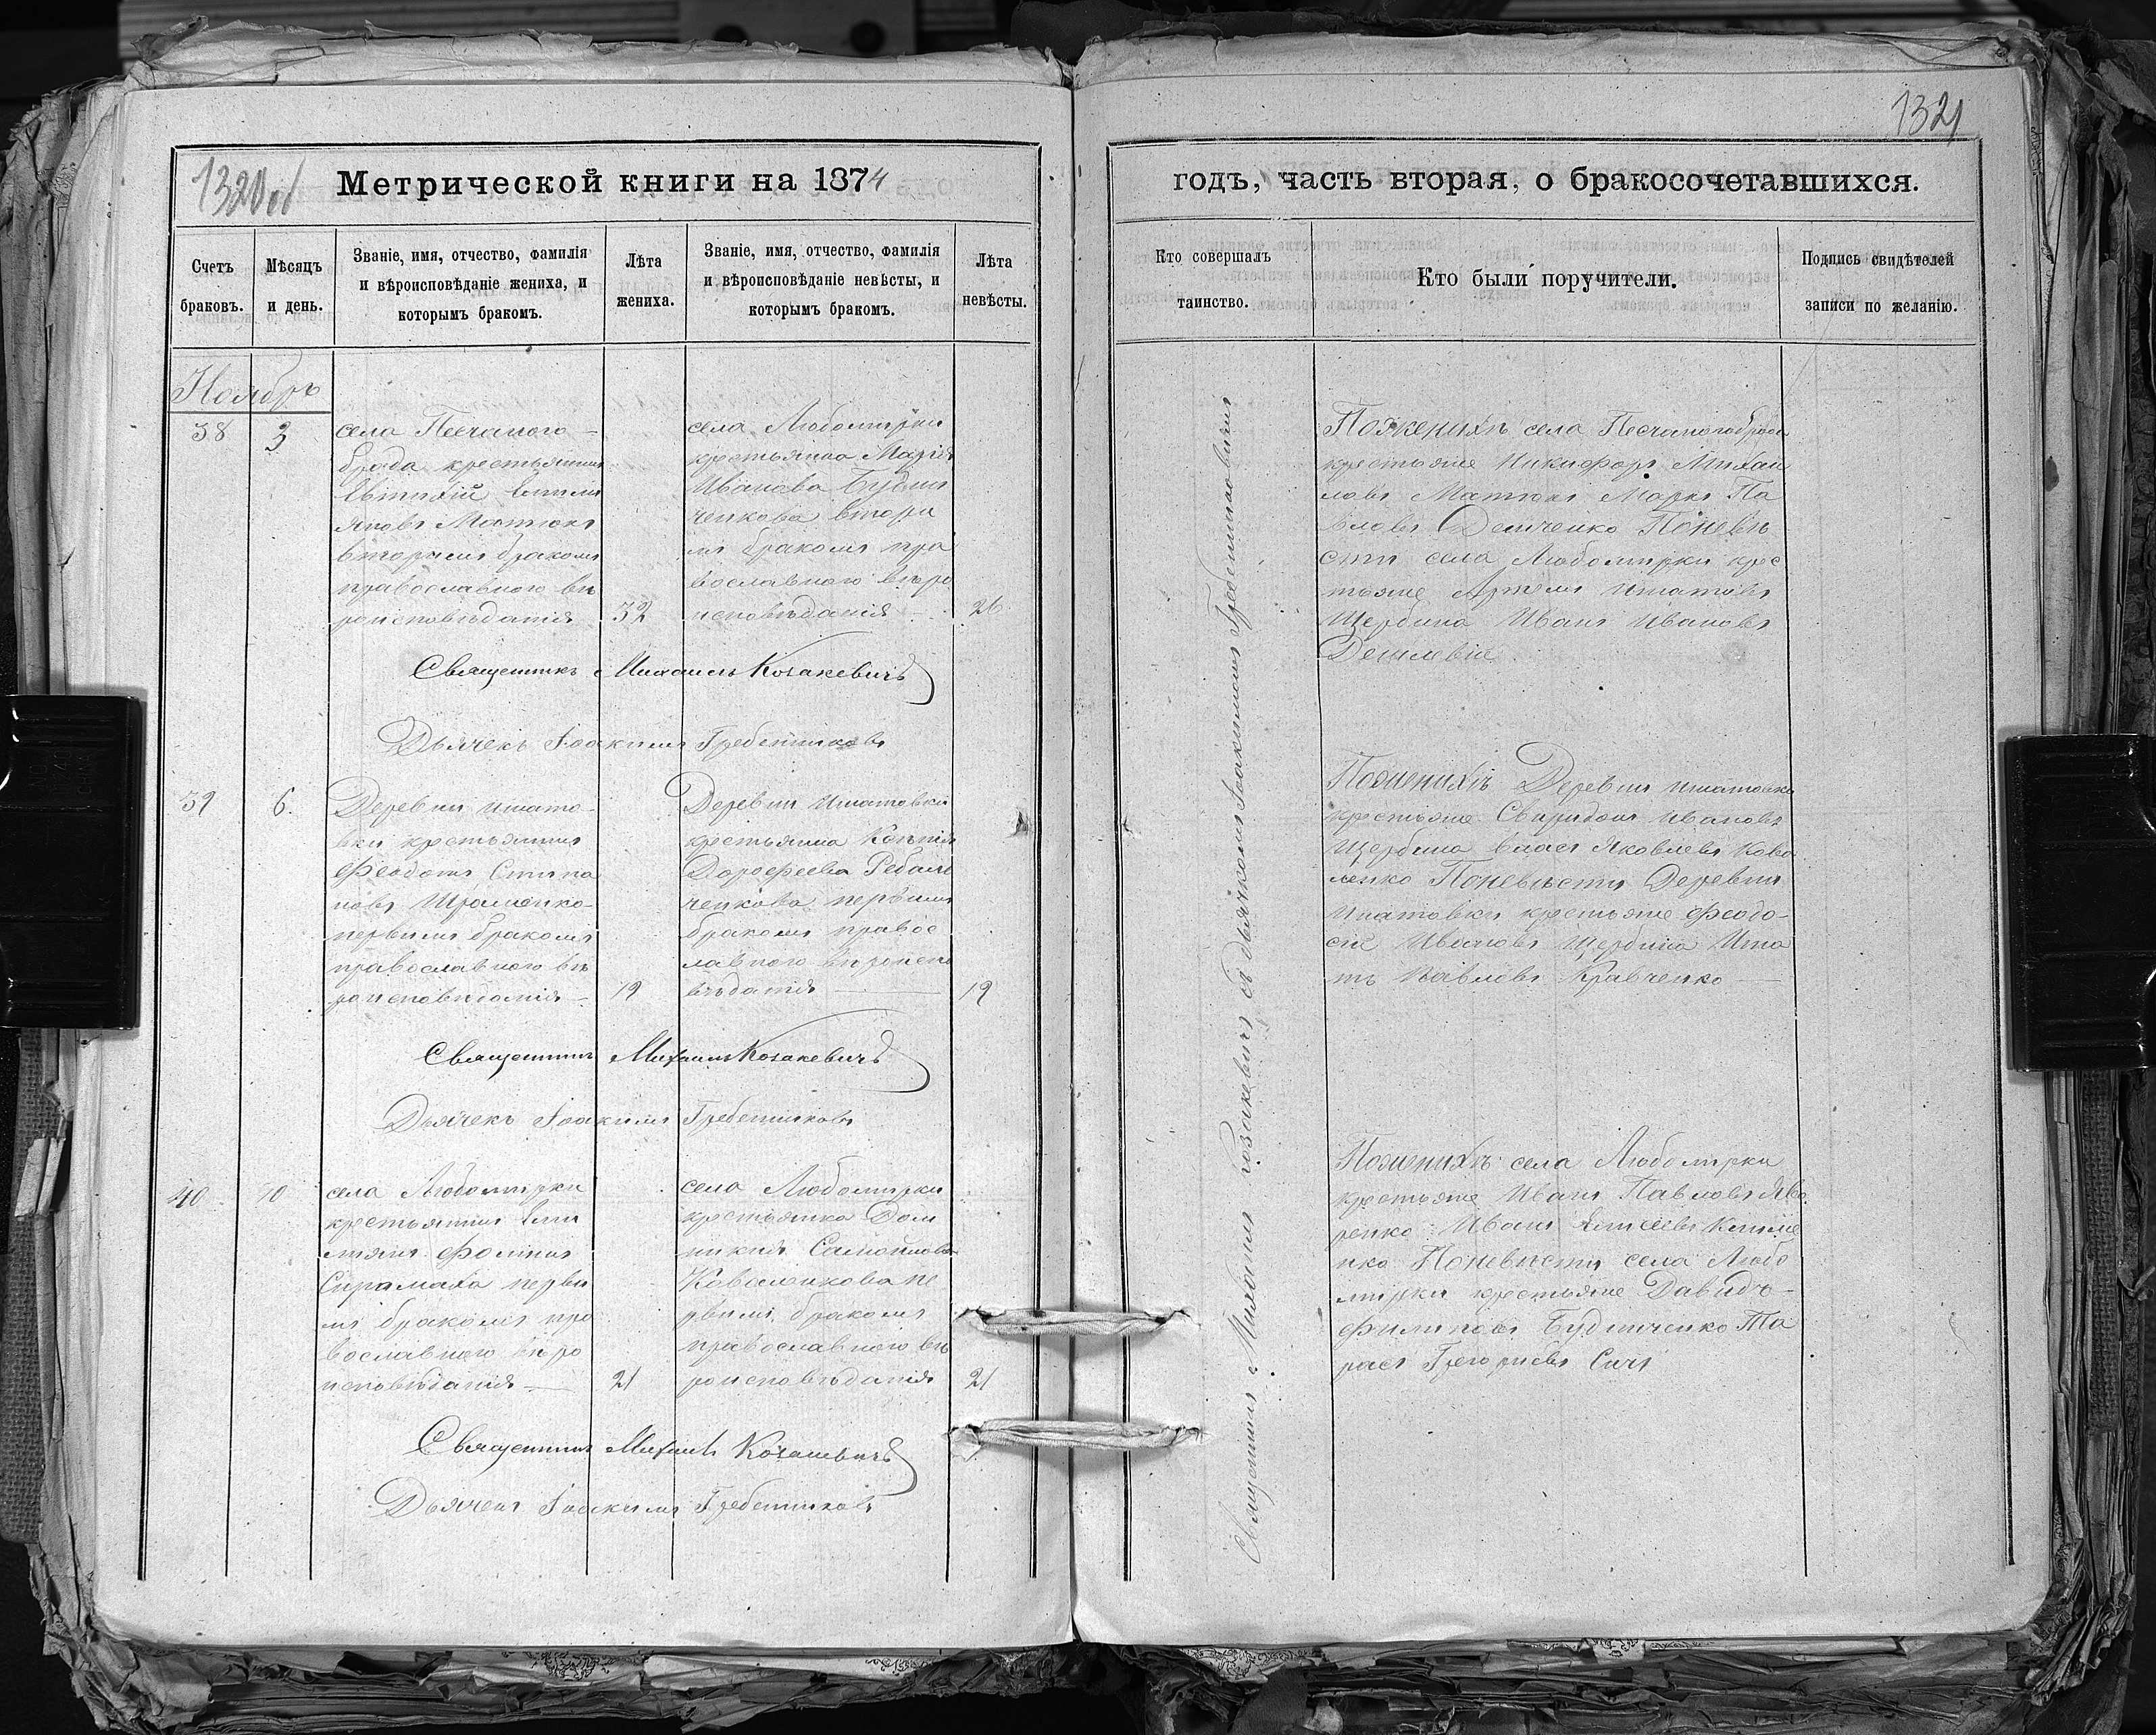 1320об
Метрической книги на 1874
Счетъ браковъ.
Мѣсяцъ и день.
Званіе, имя, отчество, фамилія
и вѣроисповѣданіе жениха, и
которымъ бракомъ.
Лѣта жениха.
Званіе, имя, отчество, фамилія
и вѣроисповѣданіе невѣсты, и
которымъ бракомъ.
Лѣта невѣсты.
Ноябрь
38
3
села Песчаного-
брода крестьянинъ
Евтихій Емили
яновъ Матюкъ
вторымъ бракомъ
православного вѣ
роисповѣданія
32
села Любомирки
крестьянка Марія
Иванова Будни
ченкова втори
мъ бракомъ пра
вославного вѣро
исповѣданія
26
Священникъ Михаилъ Козакевичъ
Дьячекъ Іоакимъ Гребенниковъ
39
6.
Деревни Ипато-
вки крестьянинъ
Феодотъ Стипа
новъ Шраменко
первымъ бракомъ
православного вѣ
роисповѣданія
19
Деревни Ипатовки
крестьянка
Дорофеева
ченкова первимъ
бракомъ правос
лавного вѣроиспо
вѣданія
19
Священникъ Михаилъ Козакевичъ
Дьячекъ Іоакимъ Гребенниковъ
40
10
села Любомирки
крестьянинъ Еми
лиянъ Фоминъ
Сиромаха перви
мъ бракомъ пра
вославного вѣро
исповѣданія
21
села Любомирки
крестьянка Дом
никия Самойлова
Коваленкова пе
рвимъ бракомъ
православного вѣ
роисповѣданія
21
Священникъ Михаилъ Козакевичъ
Дьячекъ Іоакимъ Гребенниковъ
1321
годъ, часть вторая, о бракосочетавшихся.
Кто совершалъ таинство.
Кто были поручители.
Подпись свидѣтелей записи по желанію.
Священникъ Михаилъ Козакевичъ съ дьячкомъ Іоакимомъ Гребенниковимъ
Поженихѣ села Песчаногоброда
крестьяне Никифоръ Михаи
ловъ Матюкъ Марко Па
вловъ Демченко Поневѣ
сти села Любомирки крес
тьяне Артемъ Ипатовъ
Щербина Иванъ Ивановъ
Поженихѣ Деревни Ипатовки
крестьяне Свиридонъ Ивановъ
Щербина Власъ Яковлевъ Кова
ленко Поневѣсти Деревни
Ипатовки крестьяне Феодо-
сій Ивановъ Щербина Ипа
тъ Павловъ Кравченко
Поженихѣ села Любомирки
крестьяне Иванъ Павловъ Яво
ренко Иванъ Климе
нко Поневѣсти села Любо
мирки крестьяне Давидъ
Филиповъ Будниченко Та
расъ Григориевъ Сичъ